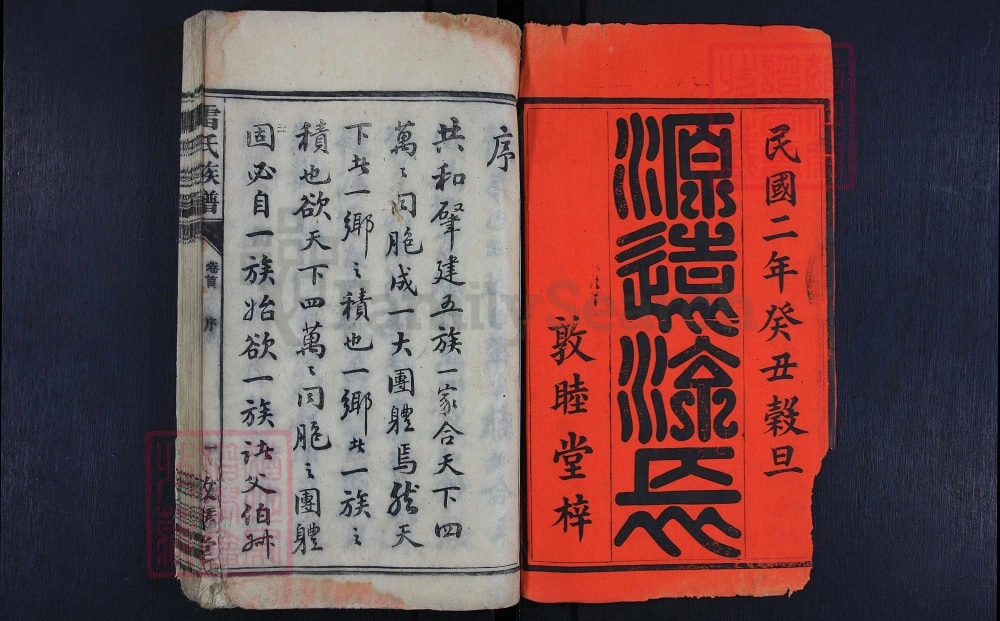 民國二年癸丑穀旦
源遠流長
敦睦堂梓
序
共和肇建五族一家合天下四
萬〻同胞成一大團體焉然天
下者一鄉之積也一鄉者一族之
積也欲天下四萬〻同胞之團體
固必自一族始欲一族諸父伯叔
雷氏族譜
卷首
序
一
FamilySearch